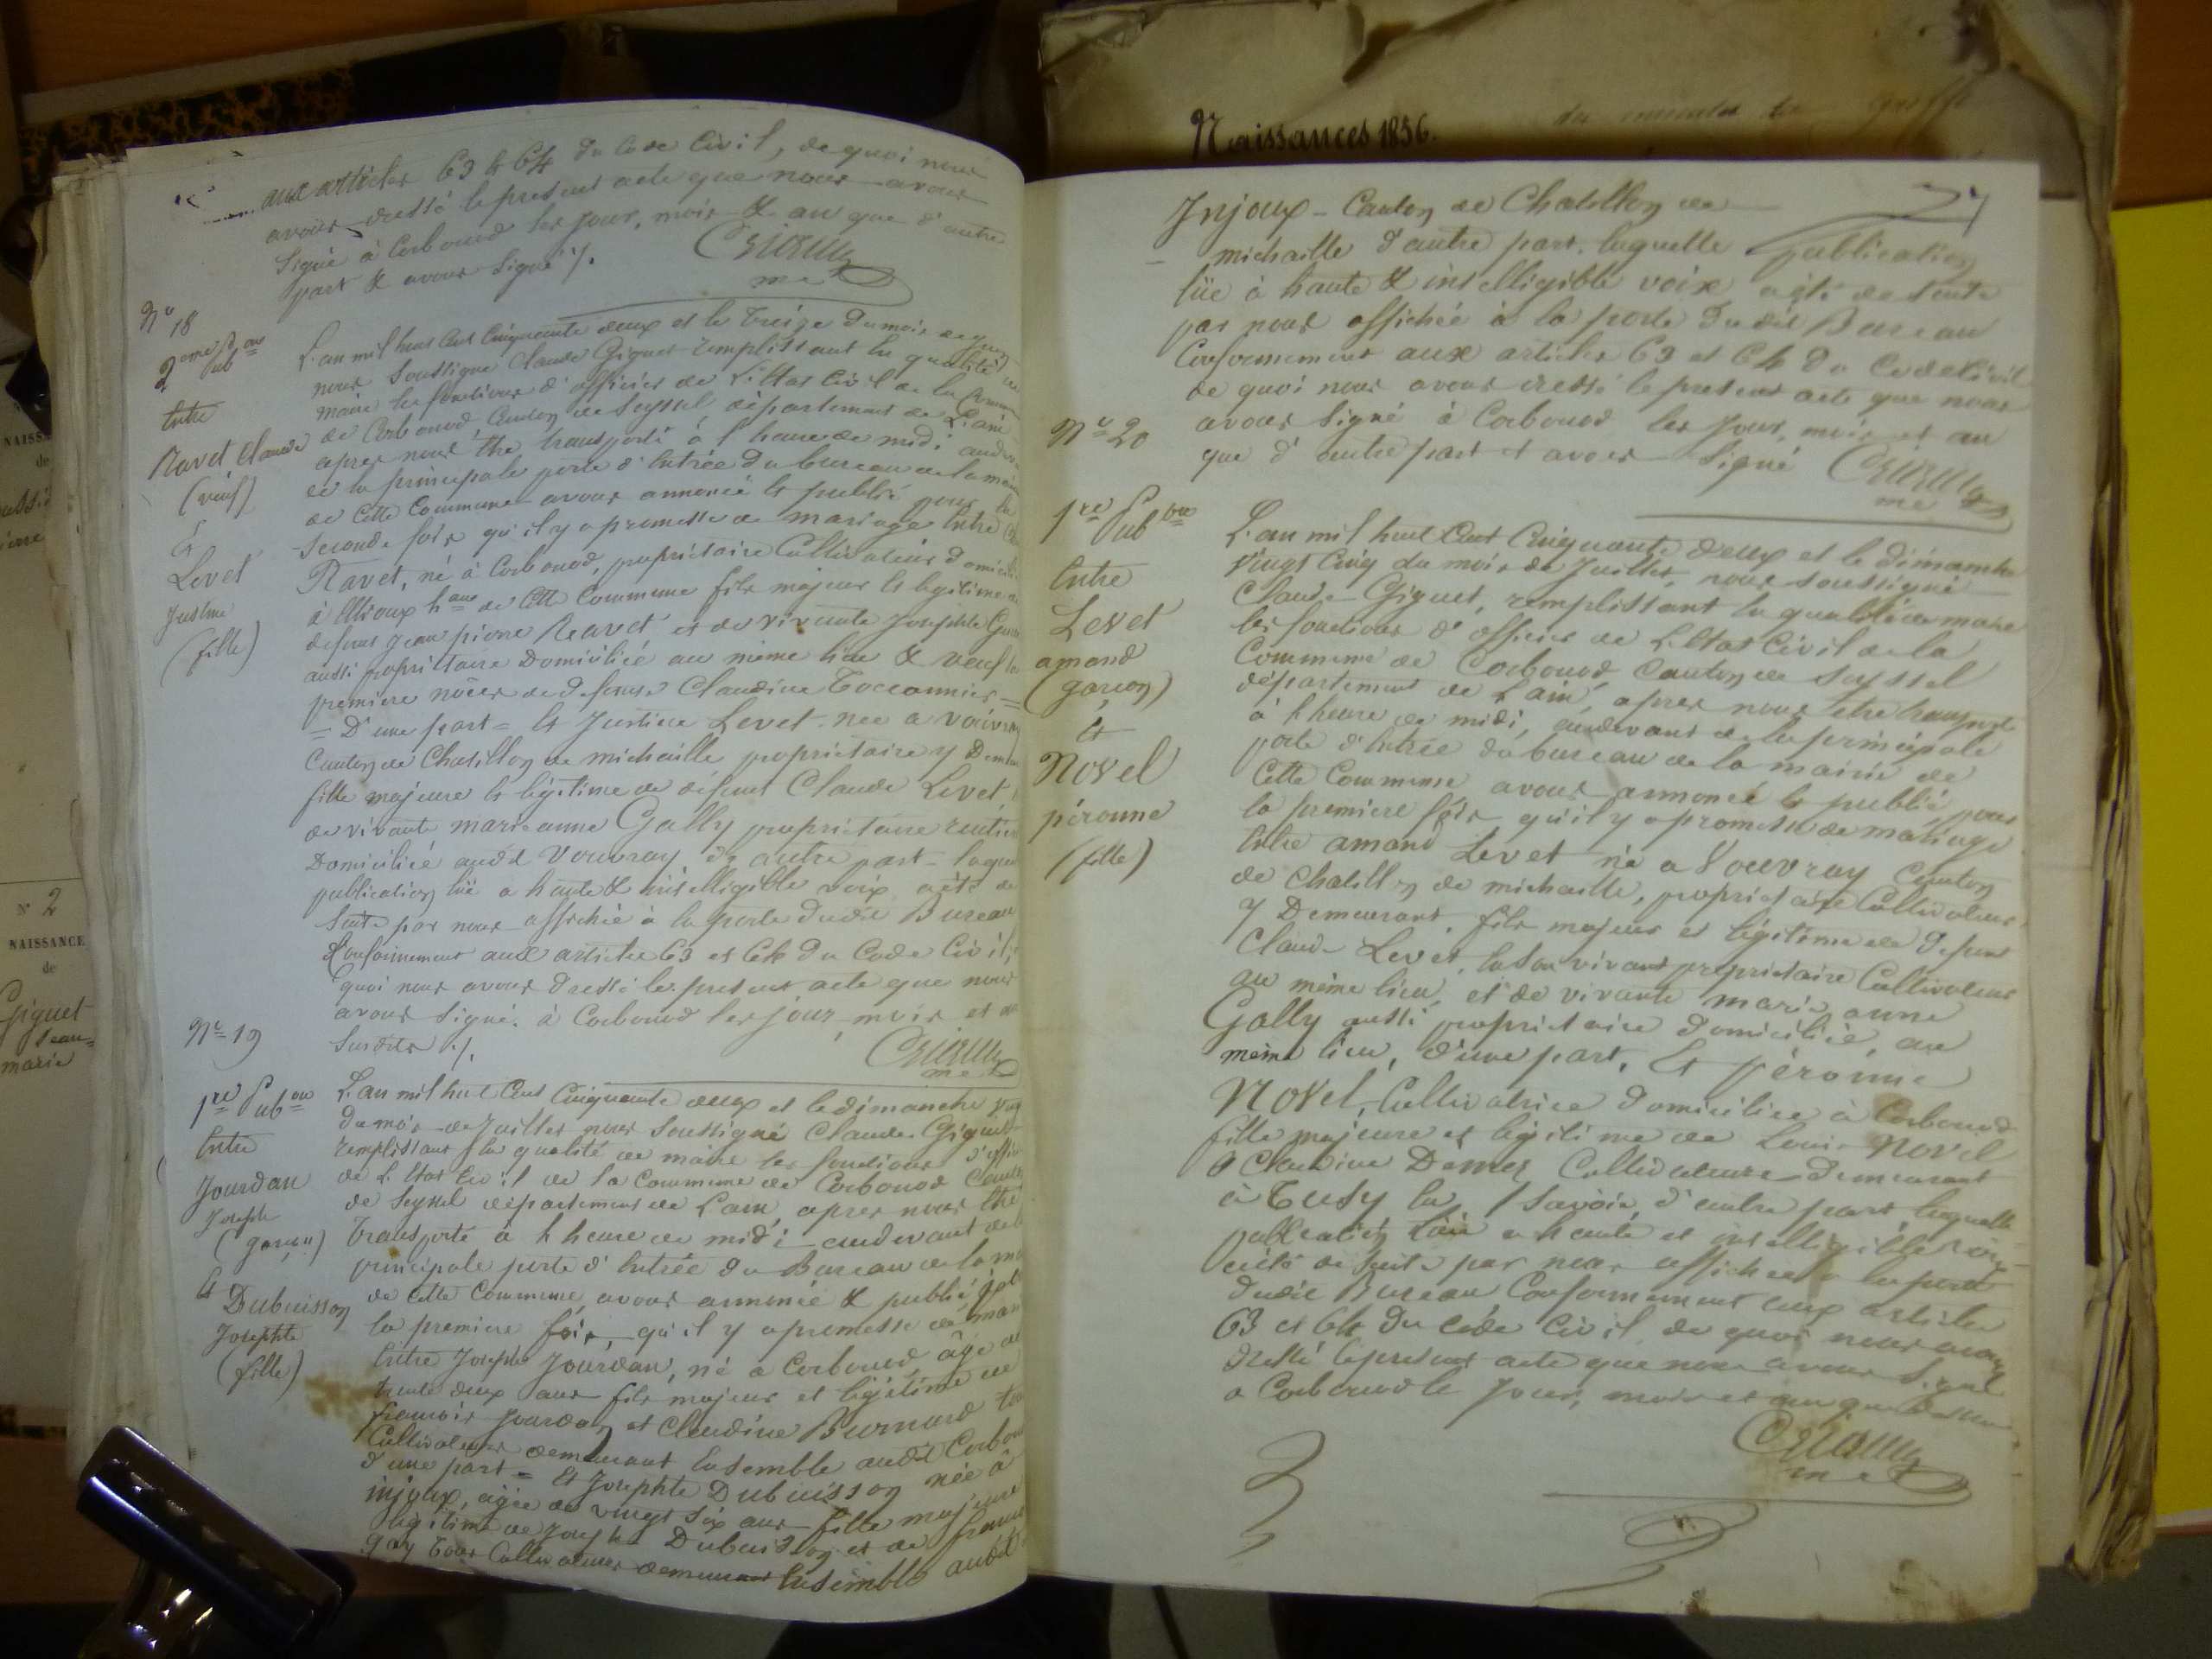 aux articles 63 & 64 du Code Civil, de quoi nous
avons dressé le present acte que nous avons
Signé à Corbonod les jour, mois & an que d'autre
part & avons Signé ./.
me
N° 18
2eme Pubon
Entre
Ravet Claude
(veuf)
Et
Levet
Justine
(fille)
L'an mil huit Cent Cinquante deux et le treize du mois
nous Soussigné Claude Giguet remplissant la qualité de
maire les fonctions d'officier de L'Etat Civil de la
de Corbonod, Canton de Seyssel, département de L'ain
apres nous être transporté à l'heure de midi
de la principale porte d'Entrée du bureau de la
de Cette Commune avons annoncé et publié pour la
Seconde fois qu'il y a promesse de mariage Entre
Ravet, né à Corbonod, propriétaire Cultivateur
à hau de Cette Commune fils majeur et legitime
defunt jean pierre Ravet et de vivante Josephte
aussi propriétaire Domiciliée au même lieu & veuf
premiere nôces de defunte Claudine
= D'une part = Et Justine Levet née a
Canton de Chatillon de michaille propriétaire y
fille majeure et légitime de défunt Claude Levet,
de vivante marie anne Gally propriétaire
Domiciliée audit Vouvray d'autre part -
publication lüe a haute & intelligible voix a été de
Suite par nous affichée à la porte dudit Bureau
Conformement aux articles 63 et 64 du Code Civil,
quoi nous avons dressé le present acte que nous
avons Signé. à Corbonod les jour, mois et an
Susdits ./.
me
N° 19
1re Pubon
Entre
Jourdan
Joseph
(garçon)
Et Dubuisson
Josephte
(fille)
L'an mil huit Cent Cinquante deux et le dimanche
du mois de Juillet nous Soussigné Claude Giguet
remplissant la qualité de maire les fonctions
de L'Etat Civil de la Commune de Corbonod
de Seyssel département de L'ain, apres nous être
transporté à l'heure de midi audevant de
principale porte d'Entrée du Bureau de la
de Cette Commune, avons annoncé & publié
la premiere fois, qu'il y a promesse de
Entre Joseph Jourdan, né a Corbonod âgé de
trente deux ans fils majeur et légitime de
françois Jourdan et Claudine
Cultivateurs demeurant Ensemble audit
d'une part = Et Josephte Dubuisson née à
injoux, agée de vingt Six ans fille majeure
légitime de Joseph Dubuisson et de
gay tous Cultivateurs demeurant Ensemble audit
NAISSANCE
de
N° 2
NAISSANCE
de
Giguet
Jean-
marie
Naissances 1856.
Greffe
Injoux - Canton de Chatillon de
michaille d'autre part. laquelle publication
lüe à haute & intelligible voix a été de Suite
par nous affichée à la porte dudit Bureau
Conformement aux articles 63 et 64 du Code Civil
de quoi nous avons dressé le present acte que nous
avons Signé à Corbonod les Jour, mois et an
que d'autre part et avons Signé
me
N° 20
1re Pubon
Entre
Levet
amand
(garçon)
Et
Novel
péronne
(fille)
L'an mil huit Cent Cinquante deux et le dimanche
vingt Cinq du mois de Juillet, nous soussigné
Claude Giguet, remplissant la qualité de maire
les fonctions d'officier de L'Etat Civil de la
Commune de Corbonod Canton de Seyssel
département de L'ain, apres nous être transporté
à l'heure de midi, audevant de la principale
porte d'Entrée du bureau de la mairie de
Cette Commune avons annoncé et publié, pour
la premiere fois qu'il y a promesse de mariage
Entre amand Levet né a Vouvray Canton
de Chatillon de michaille, propriétaire Cultivateur
y Demeurant, fils majeur et légitime de défunt
Claude Levet, En Son vivant propriétaire Cultivateur
au même lieu, et de vivante marie anne
Gally aussi propriétaire domiciliée, au
même lieu, d'une part, Et péronne
Novel, Cultivatrice domiciliée à Corbonod
fille majeure et légitime de Louis Novel
& Claudine Cultivateurs Demeurant
à En Savoie, d'autre part, laquelle
publication lüe a haute et intelligible voix
a été de Suite par nous affichée a la porte
dudit Bureau Conformement aux articles
63 et 64 du Code Civil, de quoi nous avons
dressé le present acte que nous avons Signé
a Corbonod le Jour, mois et an que dessus
me